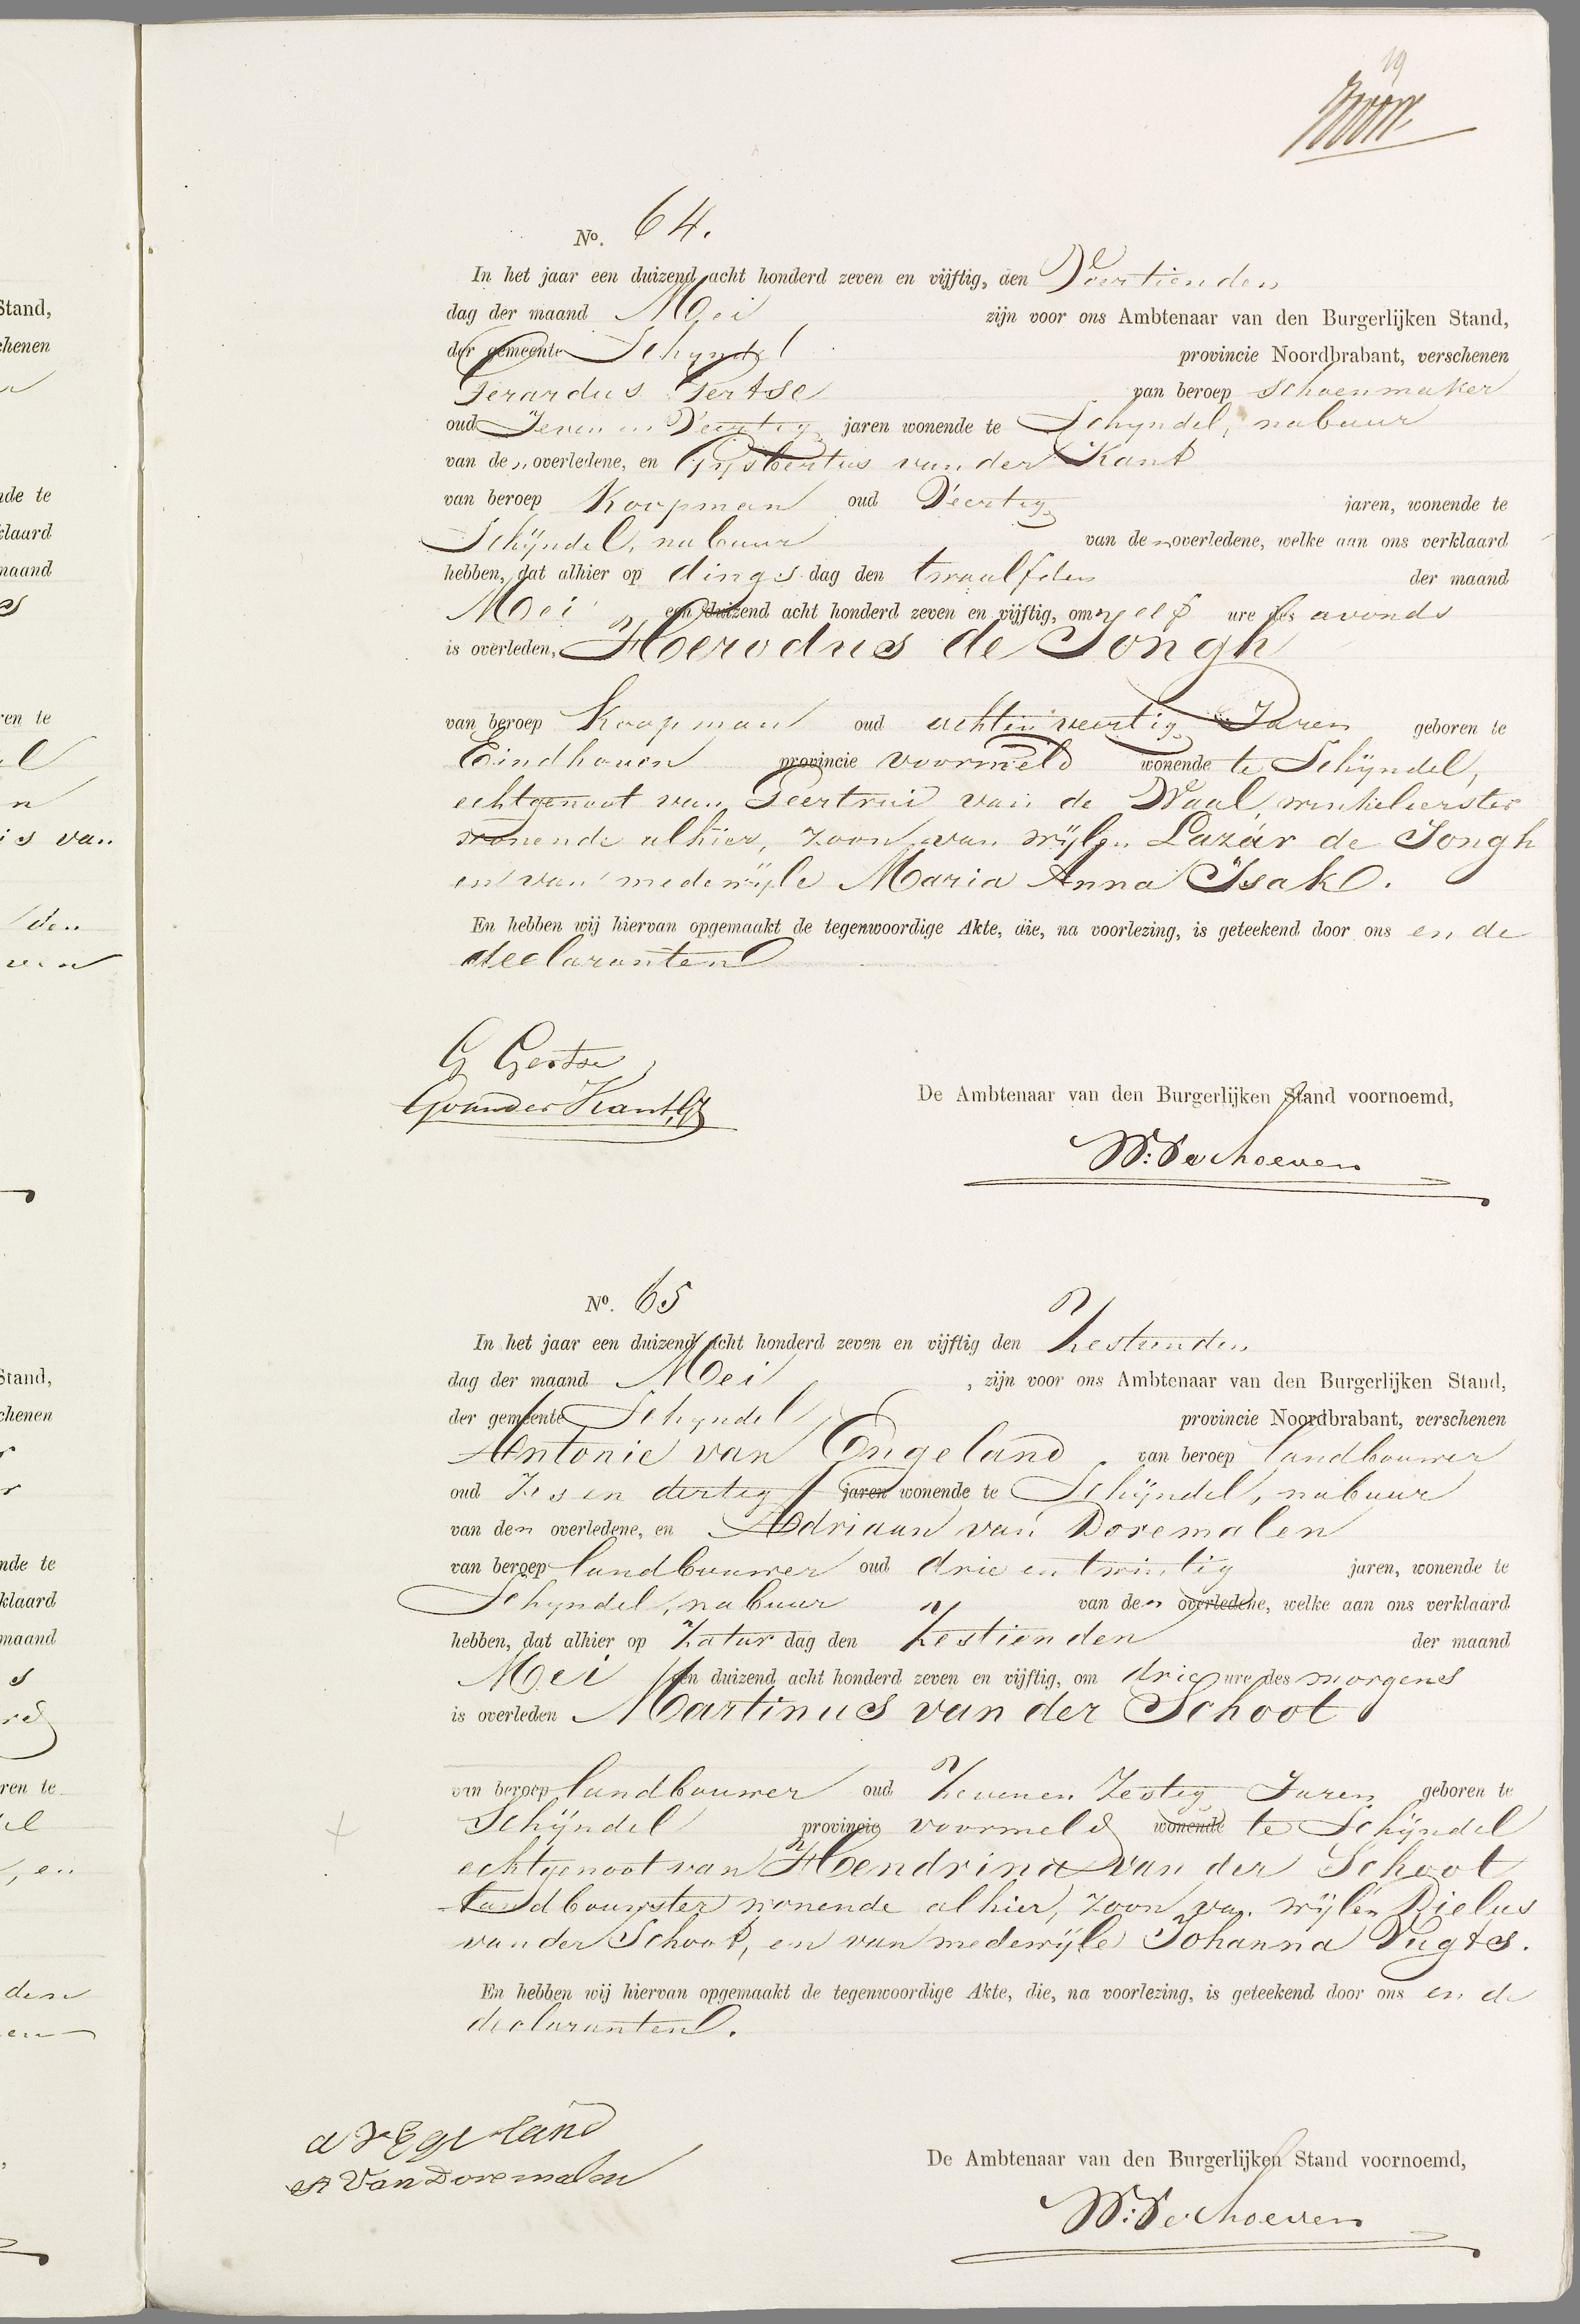 19
No. 64.
In het jaar een duizend acht honderd zeven en vijftig, den Veertienden
dag der maand Mei zijn voor ons Ambtenaar van den Burgerlijken Stand,
der gemeente Schyndel provincie Noordbrabant, verschenen
Gerardus Gertse van beroep schoenmaker
oud Zeven en Veertig jaren wonende te Schyndel, nabuur
van den overledene, en Gijsbertus van der Kant
van beroep Koopman oud Veertig jaren, wonende te
Schijndel, nabuur van den overledene, welke aan ons verklaard
hebben, dat alhier op dings dag den twaalfden der maand
Mei een duizend acht honderd zeven en vijftig, om elf ure des avonds
is overleden, Herodus de Jongh
van beroep Koopman oud achtenveertig Jaren geboren te
Eindhoven provincie voormeld wonende te Schijndel,
echtgenoot van Geertrui van de Waal, winkelierster
wonende alhier, zoon van wijlen Lazar de Jongh
en van medewijle Maria Anna Isak.
En hebben wij hiervan opgemaakt de tegenwoordige Akte, die, na voorlezing, is geteekend door ons en de
declaranten
G Gertse
GvanderKant
De Ambtenaar van den Burgerlijken Stand voornoemd,
W: Verhoeven
No. 65
In het jaar een duizend acht honderd zeven en vijftig den Zestienden
dag der maand Mei , zijn voor ons Ambtenaar van den Burgerlijken Stand,
der gemeente Schyndel provincie Noordbrabant, verschenen
Antonie van Engeland van beroep landbouwer
oud Zes en dertig jaren wonende te Schijndel, nabuur
van den overledene, en Adriaan van Doremalen
van beroep landbouwer oud drie en twintig jaren, wonende te
Schyndel, nabuur van den overledene, welke aan ons verklaard
hebben, dat alhier op Zatur dag den Zestienden der maand
Mei een duizend acht honderd zeven en vijftig, om drie ure des morgens
is overleden Martinus van der Schoot
van beroep landbouwer oud Zevenen Zestig Jaren geboren te
Schijndel provincie voormeld wonende te Schijndel
echtgenoot van Hendrina van der Schoot
landbouwster wonende alhier, zoon van wijlen Dielus
van der Schoot, en van medewijle Johanna Vugts.
En hebben wij hiervan opgemaakt de tegenwoordige Akte, die, na voorlezing, is geteekend door ons en de
declaranten.
A Van Doremalen
De Ambtenaar van den Burgerlijken Stand voornoemd,
W: Verhoeven